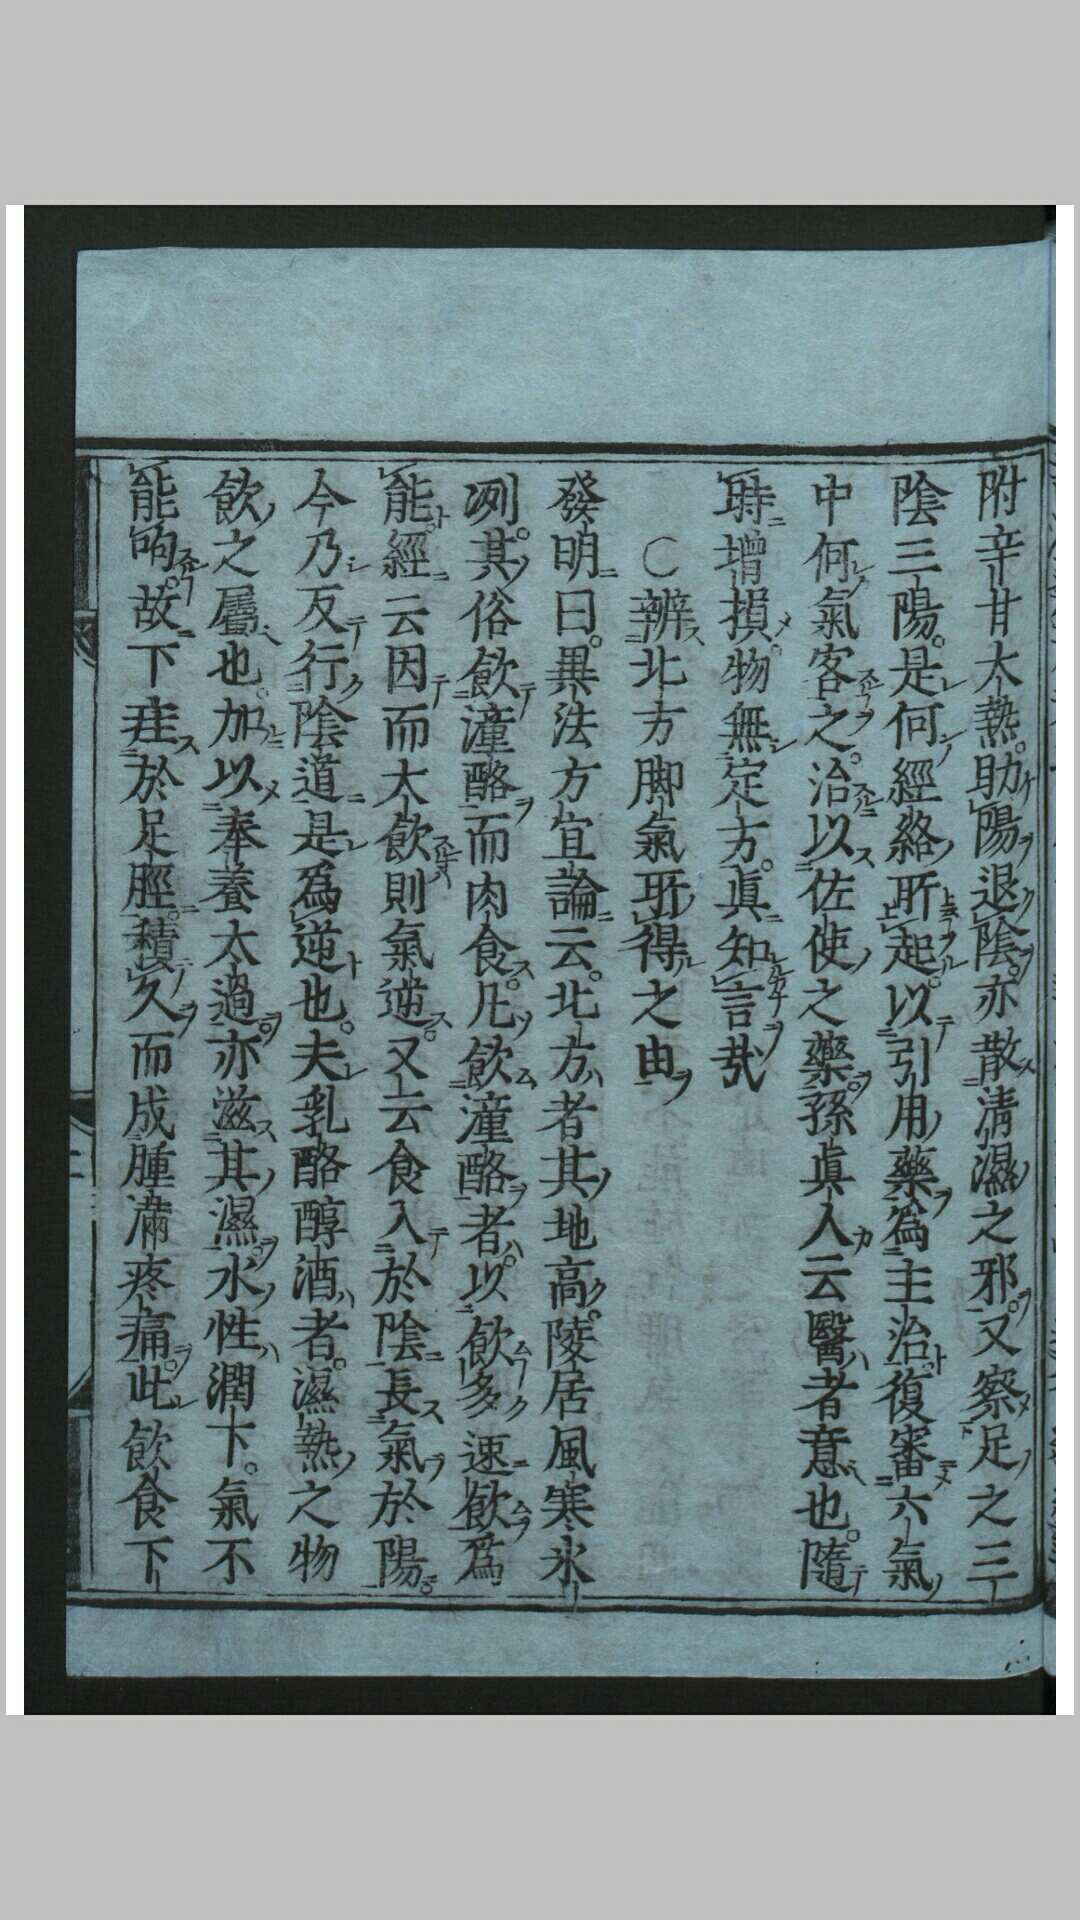 附辛甘大熱。助陽退陰。亦散清濕之邪。又察足之三
陰三陽。是何經絡所起。以引用藥為主治。復審六氣
中何氣客之。治以佐使之藥。孫真人云醫者意也。隨
時增損。物無定方。真知言哉
〇辨北方脚氣所得之由
發明曰。異法方宜論云。北方者其地高。陵居風寒氷
冽。其俗飲湩酪而肉食。凡飲湩酪者。以飲多速飲為
能。經云因而大飲則氣逆。又云食入於陰長氣於陽。
今乃反行陰道是為逆也。夫乳酪醇酒者。濕熱之物
飲之屬也。加以奉養太過。亦滋其濕。水性潤下。氣不
能呴。故下疰於足脛。積久而成腫滿疼痛。此飲食下